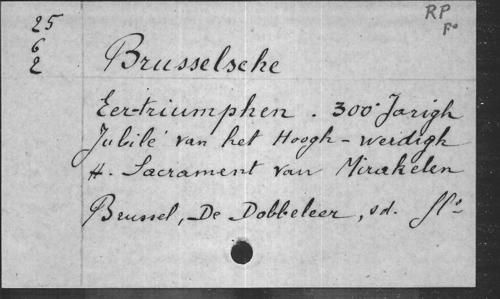 25
6
2
RP
Fo
Brusselsche
Eer-triumphen. 300 Jarigh
Jubilé van het Hoogh-weirdigh
H. Sacrament van Mirakelen
Brussel, De Dobbeleer, sd. flo